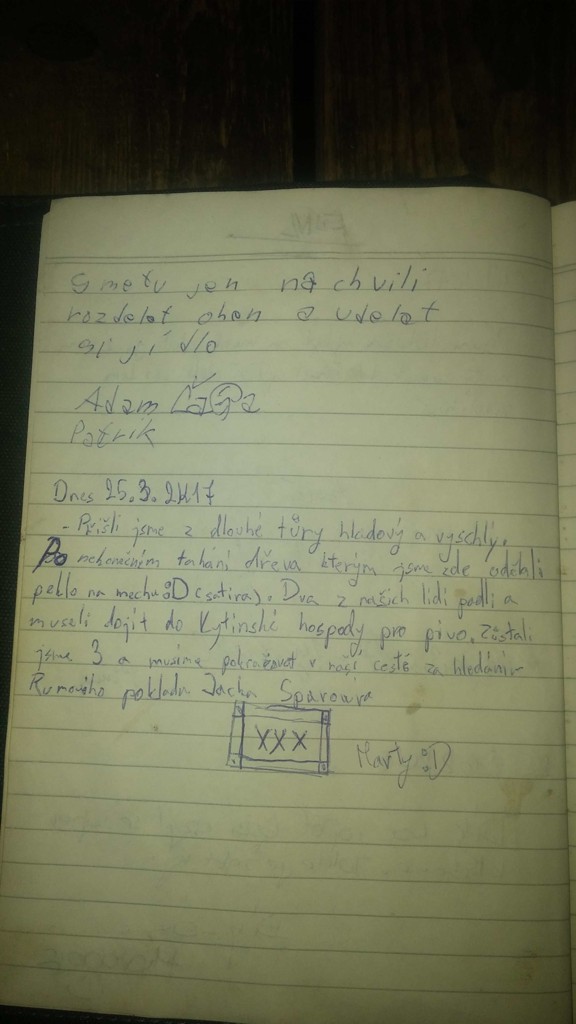 sme tu jen na chvili
rozdelat ohen a udelat
si jídlo
Adam Čápa
Patrik
Dnes 25.3.2k17
- Přišli jsme z dlouhé túry hladový a vyschlý.
Po nekonečném tahání dřeva kterým jsme zde udělali
peklo na mechu :D (satira). Dva z našich lidí padli a
museli dojít do Kytínské hospody pro pivo. Zůstali
jsme 3 a musíme pokračovat v naší cestě za hledáním
Rumového pokladu Jacka Sparowa
XXX
Marty :D